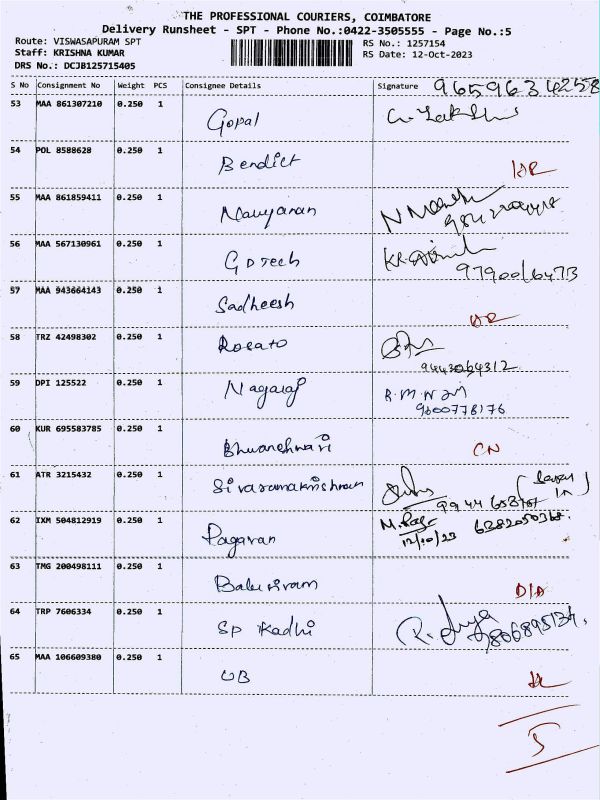 THE PROFESSIONAL COURIERS, COIMBATORE
Delivery Runsheet - SPT - Phone No.:0422-3505555 - Page No.:5
Route: VISWASAPURAM SPT RS No.: 1257154
Staff: KRISHNA KUMAR RS Date: 12-Oct-2023
DRS No.: DCJB125715405
S No Consignment No Weight PCS Consignee Details Signature 9659634258
53 MAA 861307210 0.250 1 Gopal
54 POL 8588628 0.250 1 Bendict
55 MAA 861859411 0.250 1 Narayanan
56 MAA 567130961 0.250 1 GD Tech
57 MAA 943664143 0.250 1 Sadheesh
58 TRZ 42498302 0.250 1 Rosato
9443064312
59 DPI 125522 0.250 1 Nagaraj
9600778176
60 KUR 695583785 0.250 1 Bhuvaneshwari CN
61 ATR 3215432 0.250 1 Sivaramakrishnan
62 IXM 504812919 0.250 1 Pagavan
12/10/23 6382050368.
63 TMG 200498111 0.250 1 Balu siram D/A
64 TRP 7606334 0.250 1 SP Kadhi
9806895134.
65 MAA 106609380 0.250 1 UB
5